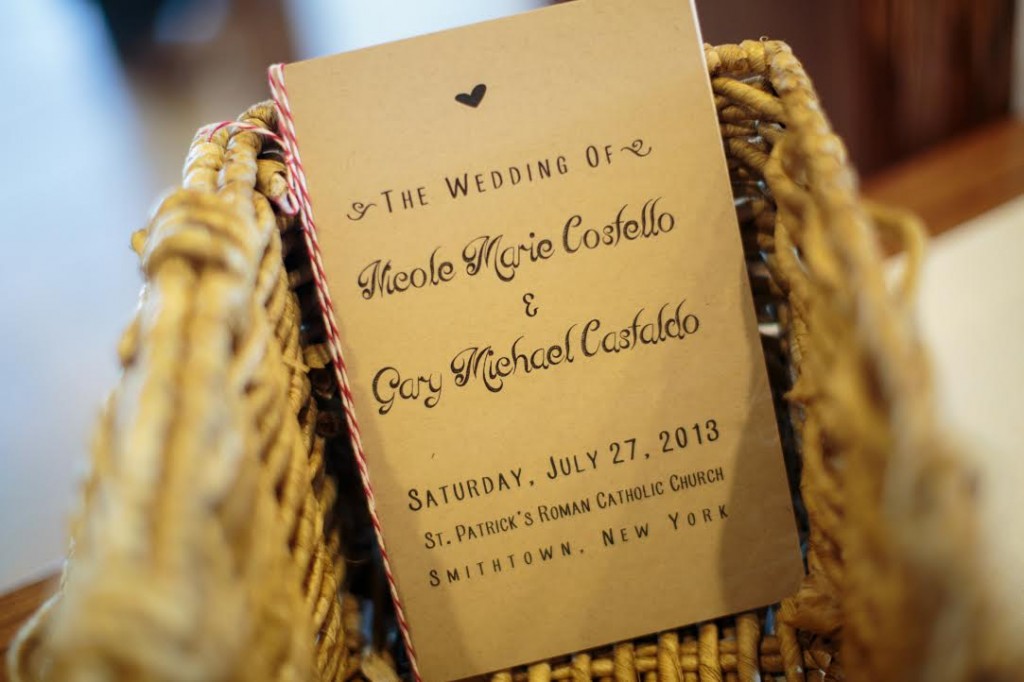 The Wedding Of
Nicole Marie Costello
&
Gary Michael Castaldo
Saturday, July 27, 2013
St. Patrick's Roman Catholic Church
Smithtown, New York